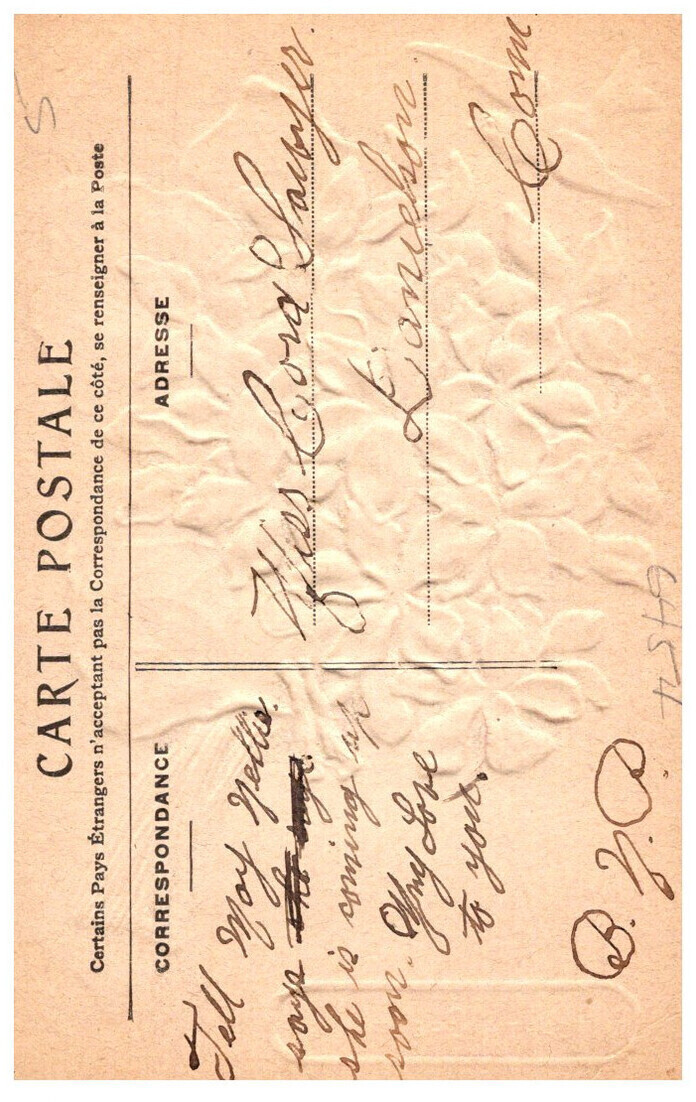 CARTE POSTALE
Certains Pays Étrangers n'acceptant pas la Correspondance de ce côté, se renseigner à la Poste
CORRESPONDANCE
Tell May Nettie
says
she is coming up
soon. My Love
to you.
B. Y. B.
ADRESSE
Miss Cora Sawyer.
Danielson
Conn
5